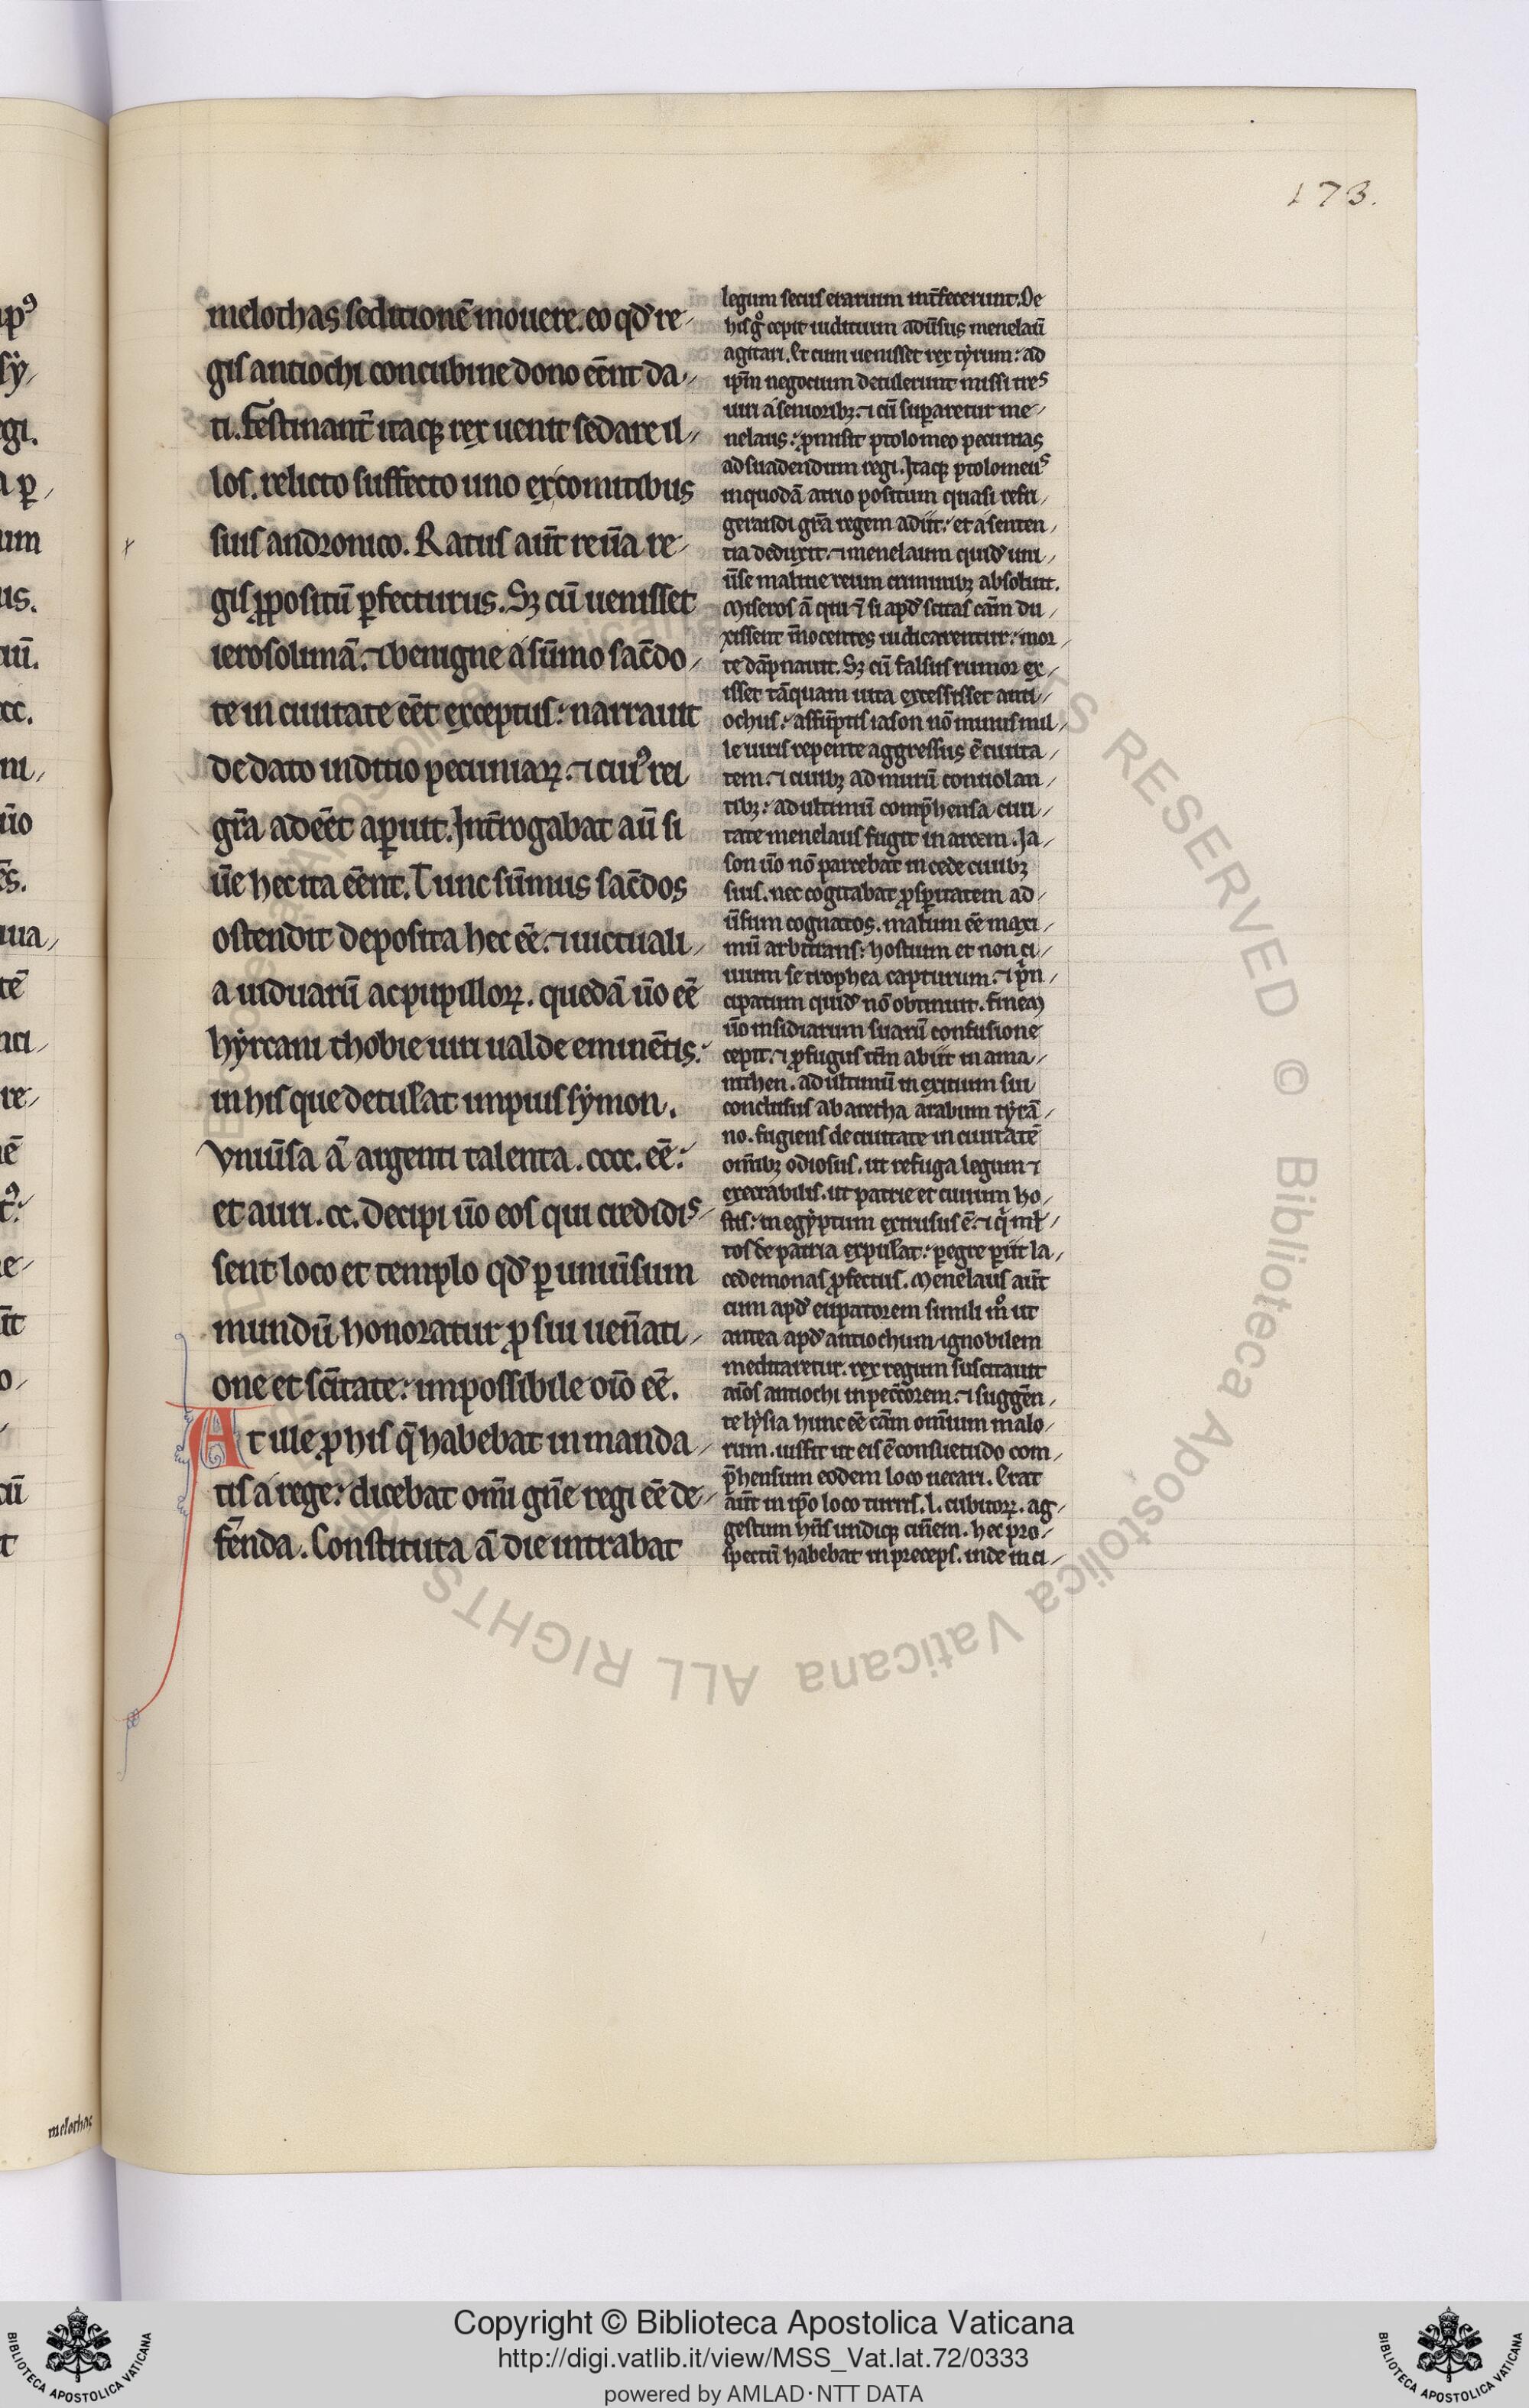 173.
melothas seditionē mouere. eo qđ re⸗
gis antiochi concubine dono eēnt da⸗
ti. Festinant̄ itaqꝫ rex uenit sedare il⸗
los. relicto suffecto uno excomitibus
suis andronico. Ratus aūt reūa re⸗
gis ꝓpositū ꝑfecturus. Sꝫ cū uenisset
ierosolimā. ⁊ benigne a sūmo sac̄do⸗
te in ciuitate eēt exceptus: narrauit
de dato inditio pecuniaꝝ. ⁊ cuiꝰ rei
gr̄a adeēt aꝑuit. Int̄rogabat aū si
ūe hec ita eēnt. Tunc sūmus sac̄dos
ostendit deposita hec eē. ⁊ uictuali⸗
a uiduarū ac pupilloꝝ. quedā ūo eē
hẏrcani thobie uiri ualde eminētis.
in his que detul̄at impius sẏmon.
Vniūsa ā argenti talenta .cccc. eē:
et auri .cc. Decipi ūo eos qui credidiˢ⸗
sent loco et templo qđ ꝑ uniūsum
mundū honoratur ꝓ sui uen̄ati⸗
one et sc̄itate: impossibile oīo eē.
At ille ꝓ his q̄ habebat in manda⸗
tis a rege: dicebat om̄i gn̄e regi eē de⸗
fēnda. Constituta ā die intrabat
legum secus erarium int̄fecerunt. De
his gͦ cepit iuditium adūsus menelaū
agitari. Et cum uenisset rex tẏrum: ad
ip̄m negocium detulerunt missi treˢ
uiri a senioribꝫ. ⁊ cū suꝑaretur me⸗
nelaus: ꝓmisit ptolomeo pecunias
ad suadendum regi. Itaqꝫ ptolomeuˢ
in quodā atrio positum quasi refri⸗
gerandi gr̄a regem adiit: et a senten⸗
tia deduxit. ⁊ menelaum quid̄ uni⸗
ūse malitie reum criminibꝫ absoluit.
Miseros ā qui ⁊ si apđ scitas cām di⸗
xissent īnocentes iudicarentur: mor⸗
te dāpnauit. Sꝫ cū falsus rumor ex⸗
isset tāquam uita excessisset anti⸗
ochus: assūptis iason nō minus mil⸗
le uiris repente aggressus ē ciuita⸗
tem. ⁊ ciuibꝫ ad murū conuolan⸗
tibꝫ: ad ultimū comp̄hensa ciui⸗
tate menelaus fugit in arcem. Ia⸗
son ūo nō parcebat in cede ciuibꝫ
suis. nec cogitabat ꝓsꝑitatem ad⸗
ūsum cognatos. malum eē maxi⸗
mū arbitrans: hostium et non ci⸗
uium se trophea capturum. ⁊ pͥn⸗
cipatum quid̄ nō obtinuit. finem
ūo insidiarum suarū confusione
cepit. ⁊ ꝓfugus itm̄ abiit in ama⸗
nithen. ad ultimū in exitium sui
conclusus ab aretha arabum tẏrā⸗
no. fugiens de ciuitate in ciuitatē
om̄ibꝫ odiosus. ut refuga legum ⁊
execrabilis. ut patrie et ciuium ho⸗
stis: in egẏptum extrusus ē. ⁊ qͥ ml̄⸗
tos de patria expul̄at: ꝑegre ꝑiit la⸗
cedemonas ꝓfectus. Menelaus aūt
cum apđ eupatorem simili mͦ ut
antea apđ antiochum ignobilem
meditaretur. rex regum suscitauit
aīos antiochi in pecc̄orem. ⁊ suggēn⸗
te lẏsia hunc eē cām omnium malo⸗
rum. iussit ut eis ē consuetudo com⸗
p̄hensum eodem loco necari. Erat
aūt in ip̄o loco turris .l. cubitoꝝ. ag⸗
gestum hn̄s undiqꝫ cin̄em. hec pro⸗
spectū habebat in preceps. inde in ci⸗
melothas
Copyright © Biblioteca Apostolica Vaticana
http://digi.vatlib.it/view/MSS_Vat.lat.72/0333
powered by AMLAD·NTT DATA